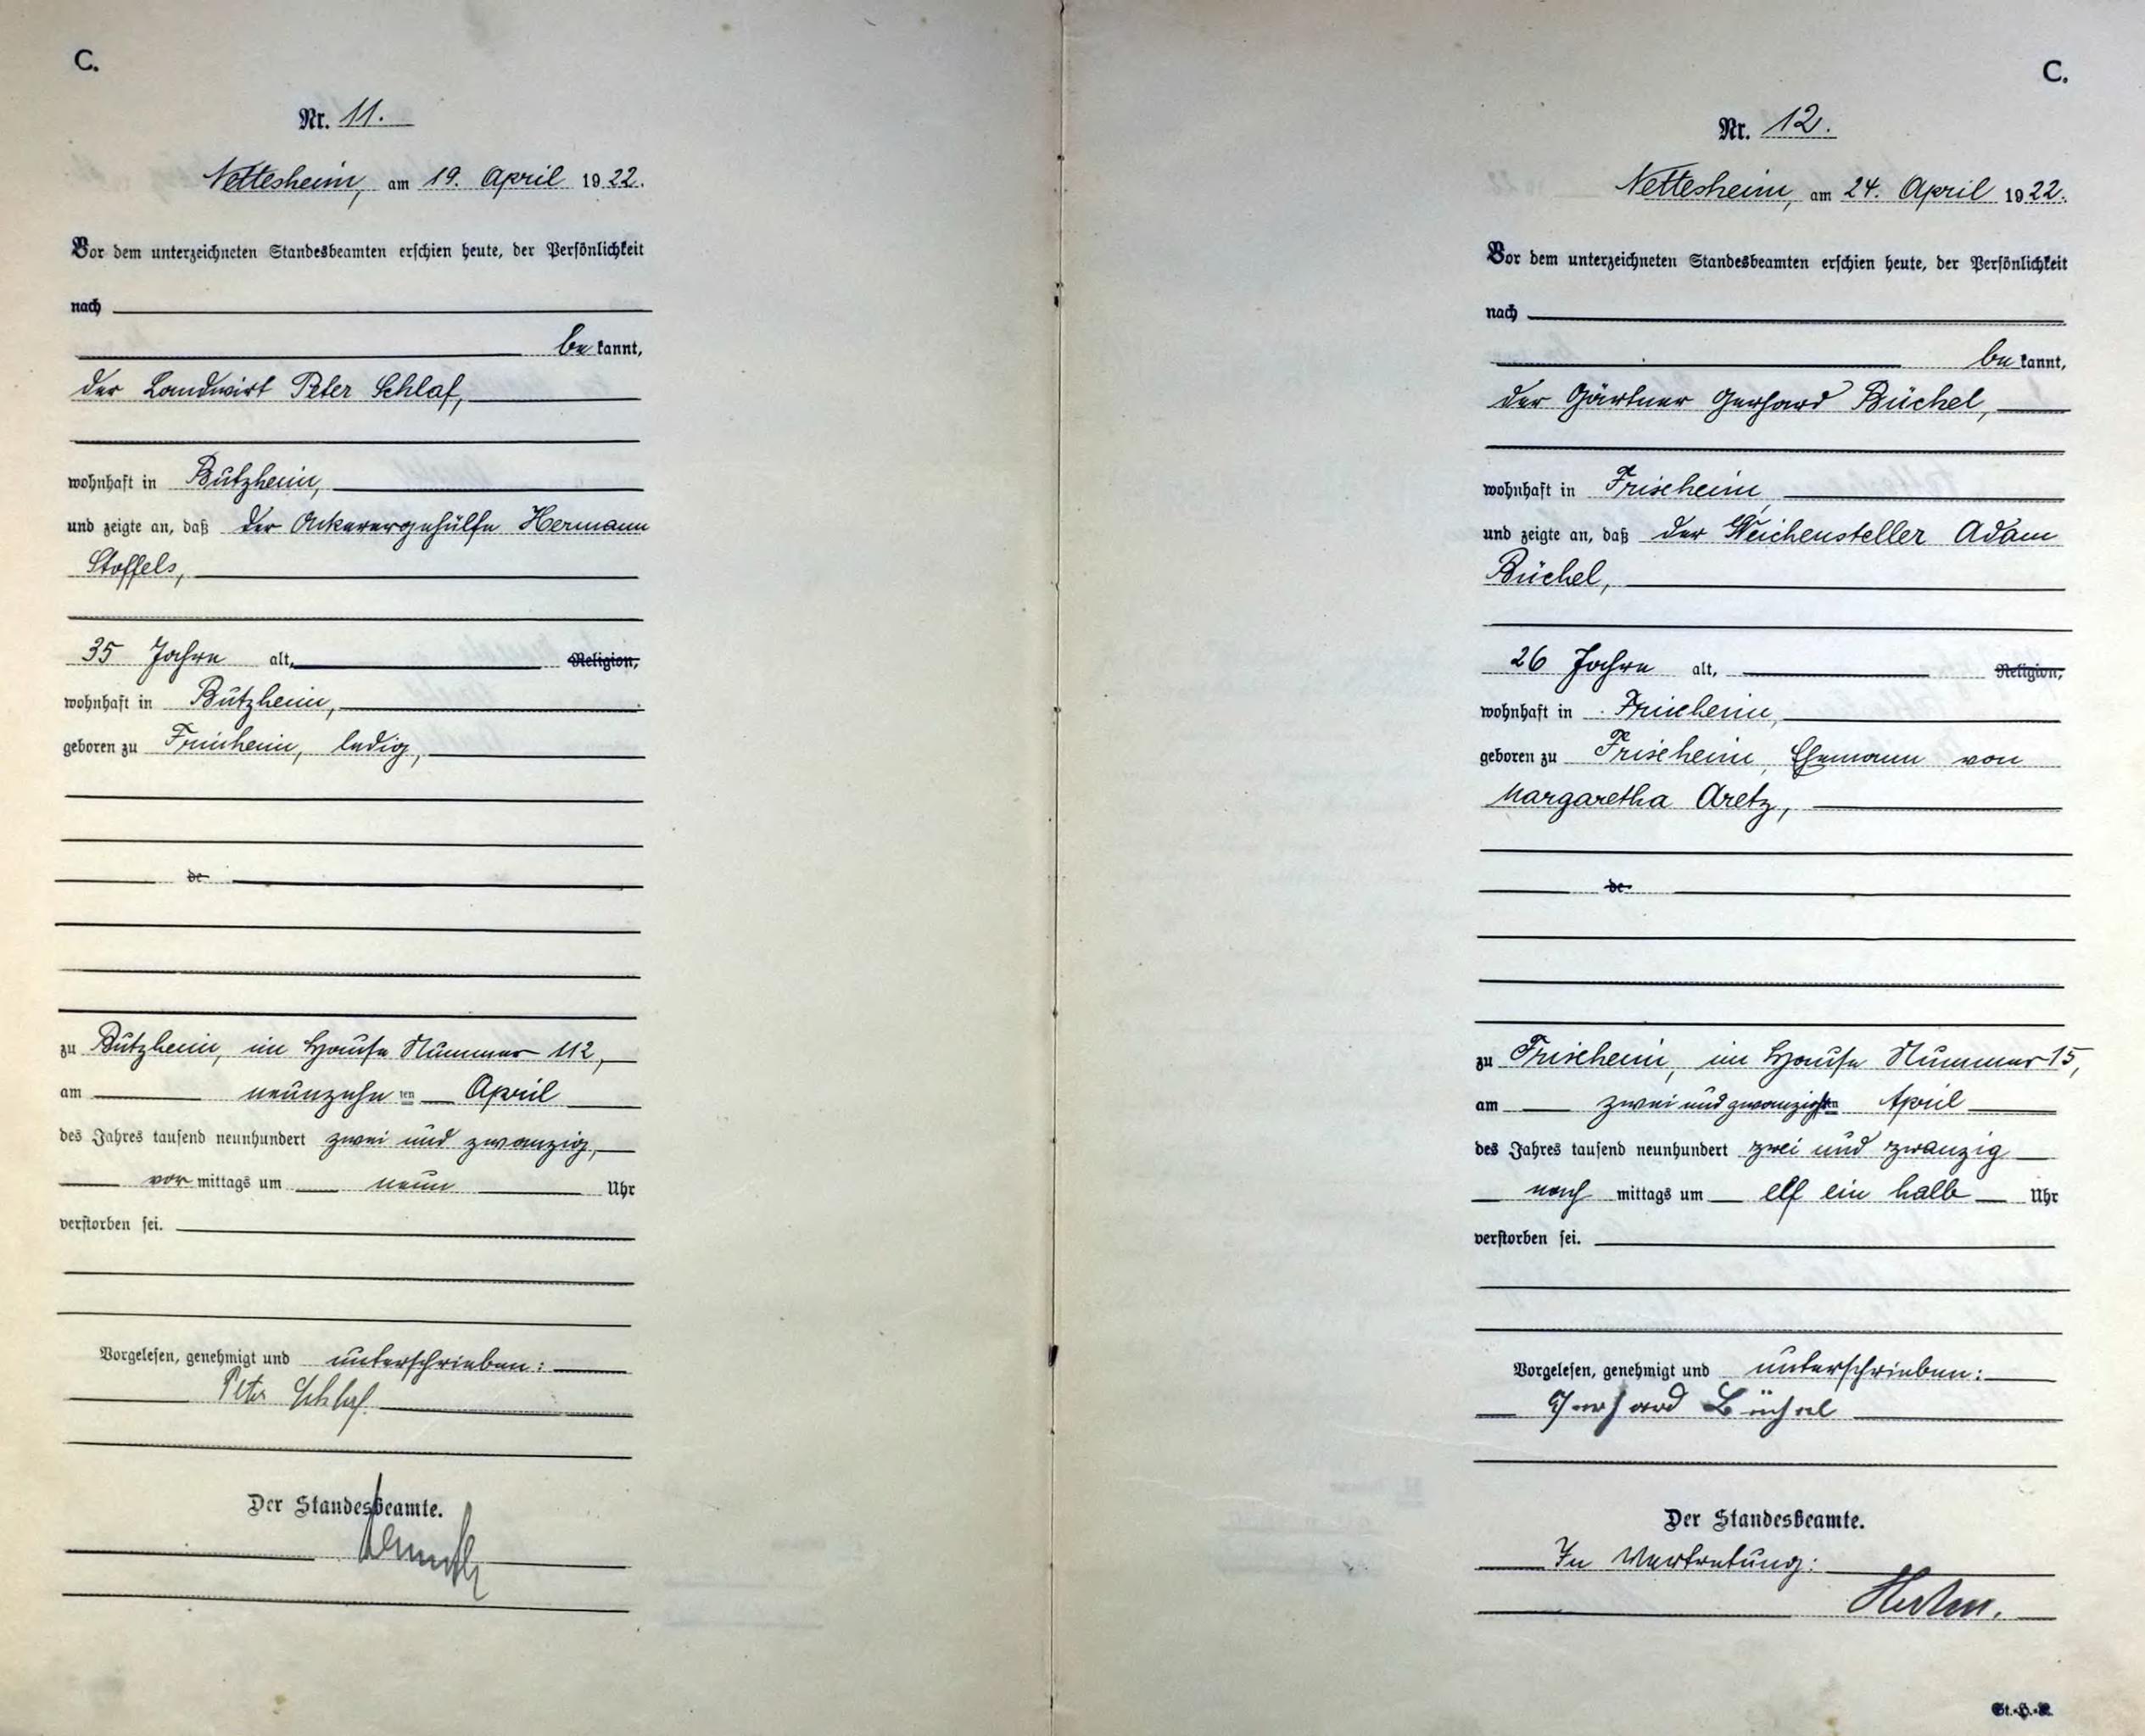 C.
Nr. 11.
Nettesheim, am 19. April 1922.
Vor dem unterzeichneten Standesbeamten erschien heute, der Persönlichkeit
nach
be kannt,
der Landwirt Peter Schlaf,
wohnhaft in Butzheim,
und zeigte an, daß der Ackerergehülfe Hermann
Stoffels,
35 Jahre alt, Religion,
wohnhaft in Butzheim,
geboren zu Frixheim, ledig,
de
zu Butzheim, im Hause Nummer 112,
am neunzehn ten April
des Jahres tausend neunhundert zwei und zwanzig,
vor mittags um neun Uhr
verstorben sei.
Vorgelesen, genehmigt und unterschrieben:
Peter Schlaf.
Der Standesbeamte.
C.
Nr. 12.
Nettesheim, am 24. April 1922.
Vor dem unterzeichneten Standesbeamten erschien heute, der Persönlichkeit
nach
be kannt,
der Gärtner Gerhard Büchel,
wohnhaft in Frixheim,
und zeigte an, daß der Weichensteller Adam
Büchel,
26 Jahre alt, Religion,
wohnhaft in Frixheim,
geboren zu Frixheim, Ehemann von
Margaretha Aretz,
de
zu Frixheim, im Hause Nummer 15,
am zwei und zwanzigsten April
des Jahres tausend neunhundert zwei und zwanzig
nach mittags um elf ein halb Uhr
verstorben sei.
Vorgelesen, genehmigt und unterschrieben:
Gerhard Büchel
Der Standesbeamte.
In Vertretung: